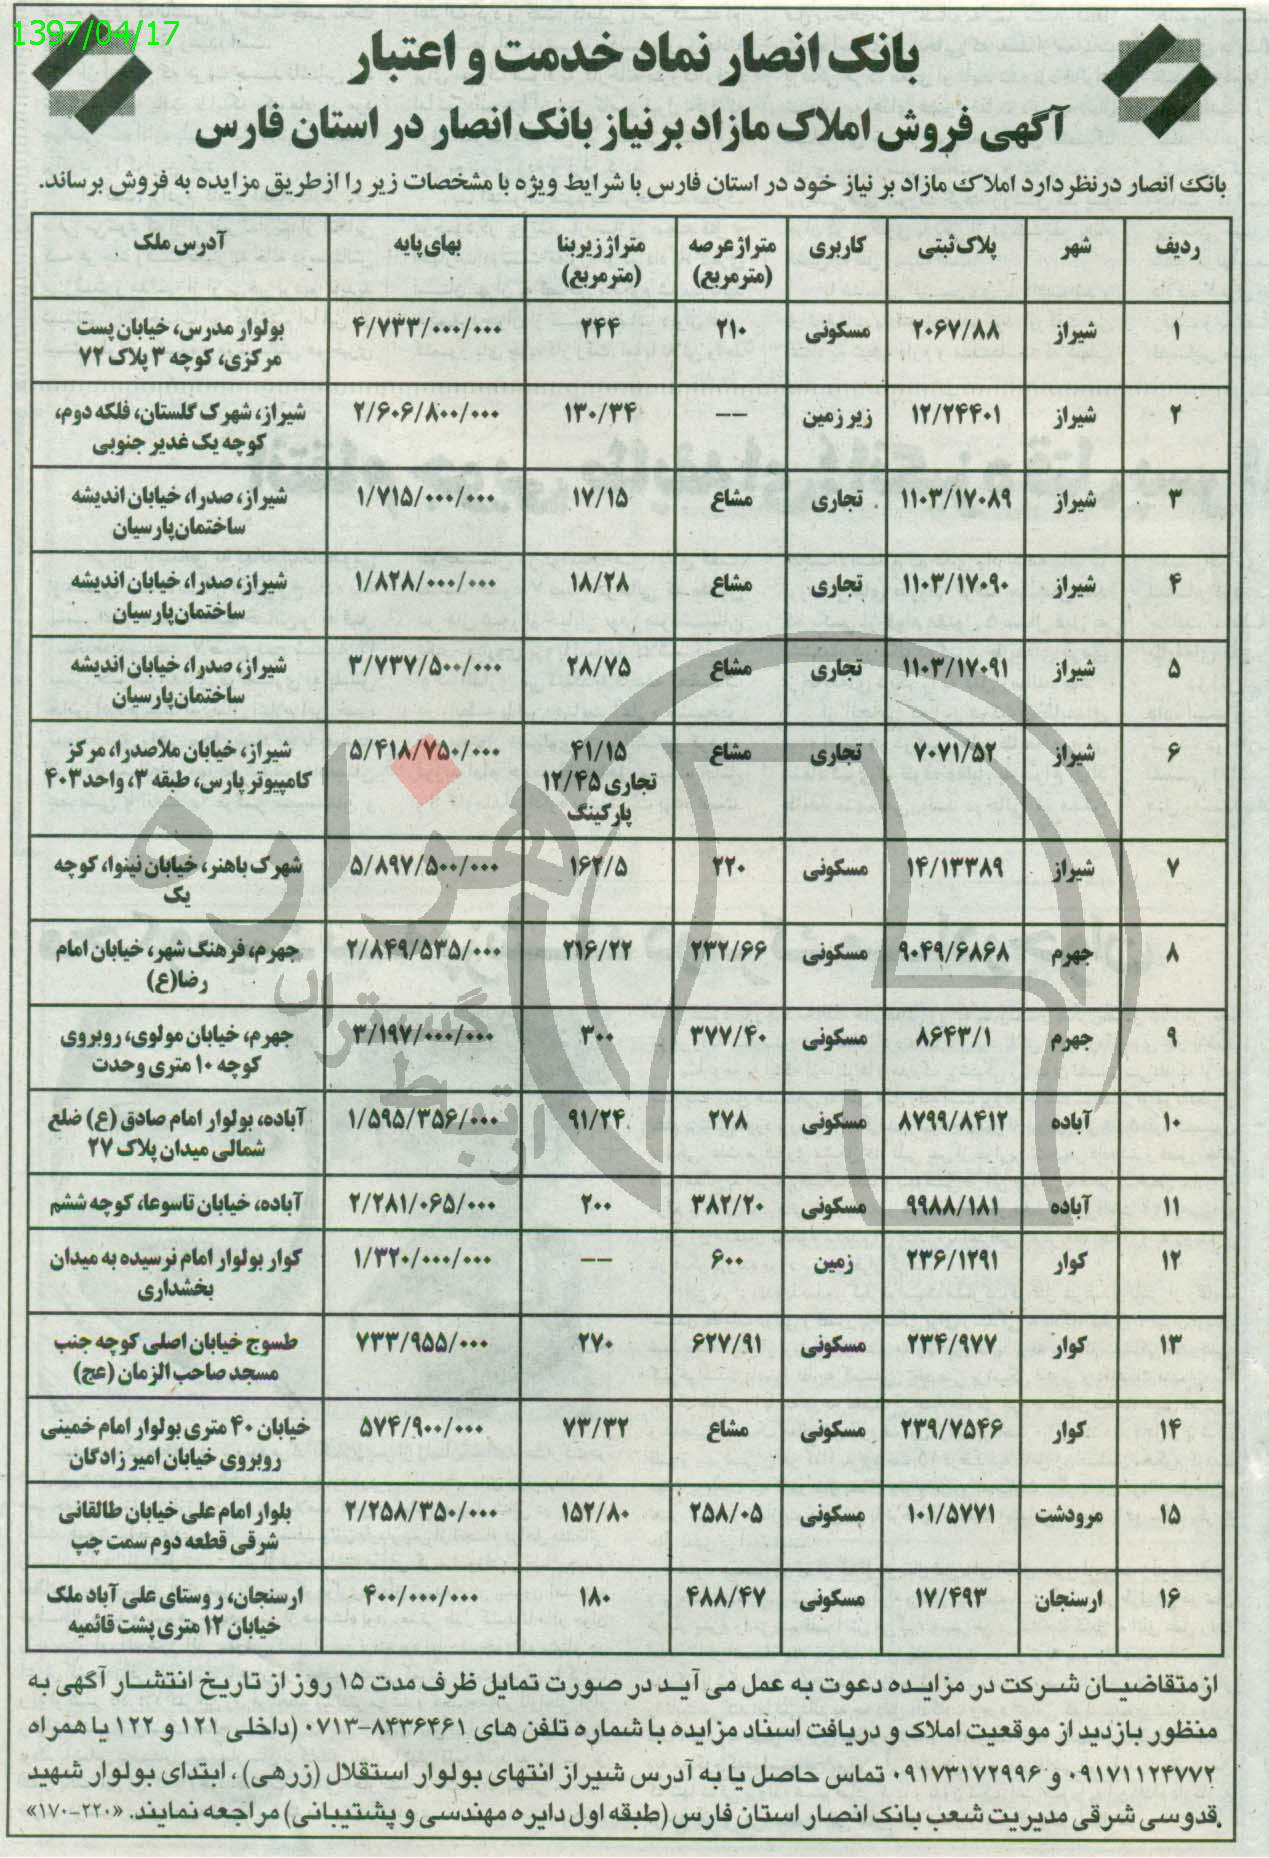 1397/04/17
بانک انصار نماد خدمت و اعتبار
آگهی فروش املاک مازاد بر نیاز بانک انصار در استان فارس
بانک انصار درنظر دارد املاک مازاد بر نیاز خود در استان فارس با شرایط ویژه با مشخصات زیر را ازطریق مزایده به فروش برساند.
ردیف شهر پلاک ثبتی کاربری متراژ عرصه (مترمربع) متراژ زیربنا (مترمربع) بهای پایه آدرس ملک
۱ شیراز ۲۰۶۷/۸۸ مسکونی ۲۱۰ ۲۴۴ ۴/۷۳۳/۰۰۰/۰۰۰ بولوار مدرس، خیابان پست
مرکزی، کوچه ۳ پلاک ۷۲
۲ شیراز ۱۲/۲۴۴۰۱ زیرزمین -- ۱۳۰/۳۴ ۲/۶۰۶/۸۰۰/۰۰۰ شیراز، شهرک گلستان، فلکه دوم،
کوچه یک غدیر جنوبی
۳ شیراز ۱۱۰۳/۱۷۰۸۹ تجاری مشاع ۱۷/۱۵ ۱/۷۱۵/۰۰۰/۰۰۰ شیراز، صدرا، خیابان اندیشه
ساختمان پارسیان
۴ شیراز ۱۱۰۳/۱۷۰۹۰ تجاری مشاع ۱۸/۲۸ ۱/۸۲۸/۰۰۰/۰۰۰ شیراز، صدرا، خیابان اندیشه
ساختمان پارسیان
۵ شیراز ۱۱۰۳/۱۷۰۹۱ تجاری مشاع ۲۸/۷۵ ۳/۷۳۷/۵۰۰/۰۰۰ شیراز، صدرا، خیابان اندیشه
ساختمان پارسیان
۶ شیراز ۷۰۷۱/۵۲ تجاری مشاع ۴۱/۱۵ ۵/۴۱۸/۷۵۰/۰۰۰ شیراز، خیابان ملاصدرا، مرکز
تجاری ۱۲/۴۵ کامپیوتر پارس، طبقه ۳، واحد ۴۰۳
پارکینگ
۷ شیراز ۱۴/۱۳۳۸۹ مسکونی ۲۲۰ ۱۶۲/۵ ۵/۸۹۷/۵۰۰/۰۰۰ شهرک باهنر، خیابان نینوا، کوچه
یک
۸ جهرم ۹۰۴۹/۶۸۶۸ مسکونی ۲۳۲/۶۶ ۲۱۶/۲۲ ۲/۸۴۹/۵۳۵/۰۰۰ جهرم، فرهنگ شهر، خیابان امام
رضا(ع)
۹ جهرم ۸۶۴۳/۱ مسکونی ۳۷۷/۴۰ ۳۰۰ ۳/۱۹۷/۰۰۰/۰۰۰ جهرم، خیابان مولوی، روبروی
کوچه ۱۰ متری وحدت
۱۰ آباده ۸۷۹۹/۸۴۱۲ مسکونی ۲۷۸ ۹۱/۲۴ ۱/۵۹۵/۳۵۶/۰۰۰ آباده، بولوار امام صادق (ع) ضلع
شمالی میدان پلاک ۲۷
۱۱ آباده ۹۹۸۸/۱۸۱ مسکونی ۳۸۲/۲۰ ۲۰۰ ۲/۲۸۱/۰۶۵/۰۰۰ آباده، خیابان تاسوعا، کوچه ششم
۱۲ کوار ۲۳۶/۱۲۹۱ زمین ۶۰۰ -- ۱/۳۲۰/۰۰۰/۰۰۰ کوار بولوار امام نرسیده به میدان
بخشداری
۱۳ کوار ۲۳۴/۹۷۷ مسکونی ۶۲۷/۹۱ ۲۷۰ ۷۳۳/۹۵۵/۰۰۰ طسوج خیابان اصلی کوچه جنب
مسجد صاحب الزمان (عج)
۱۴ کوار ۲۳۹/۷۵۴۶ مسکونی مشاع ۷۳/۳۲ ۵۷۴/۹۰۰/۰۰۰ خیابان ۴۰ متری بولوار امام خمینی
روبروی خیابان امیر زادگان
۱۵ مرودشت ۱۰۱/۵۷۷۱ مسکونی ۲۵۸/۰۵ ۱۵۲/۸۰ ۲/۲۵۸/۳۵۰/۰۰۰ بلوار امام علی خیابان طالقانی
شرقی قطعه دوم سمت چپ
۱۶ ارسنجان ۱۷/۴۹۳ مسکونی ۴۸۸/۴۷ ۱۸۰ ۴۰۰/۰۰۰/۰۰۰ ارسنجان، روستای علی آباد ملک
خیابان ۱۲ متری پشت قائمیه
ازمتقاضیان شرکت در مزایده دعوت به عمل می آید در صورت تمایل ظرف مدت ۱۵ روز از تاریخ انتشار آگهی به
منظور بازدید از موقعیت املاک و دریافت اسناد مزایده با شماره تلفن های ۸۴۳۶۴۶۱-۰۷۱۳ (داخلی ۱۲۱ و ۱۲۲ یا همراه
۰۹۱۷۱۱۲۴۷۷۲ و ۰۹۱۷۳۱۷۲۹۹۶ تماس حاصل یا به آدرس شیراز انتهای بولوار استقلال (زرهی)، ابتدای بولوار شهید
قدوسی شرقی مدیریت شعب بانک انصار استان فارس (طبقه اول دایره مهندسی و پشتیبانی) مراجعه نمایند. «۲۲۰-۱۷۰»
هزاره
گستران
ارتباط